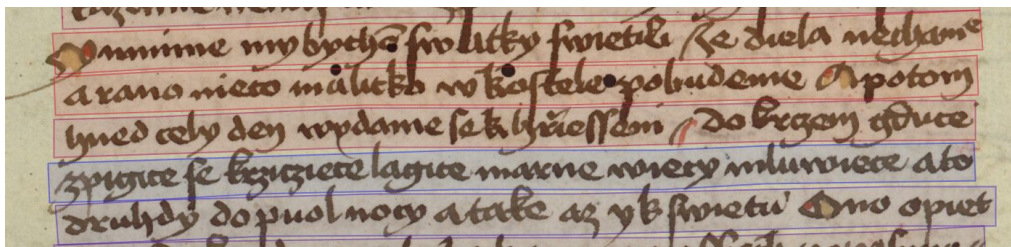 Mnimme my bychom swatky swietili / Ze diela nechame
a rano nieco malitko w kostele pobudeme A potom
hned cely den wydame se k hrziessem / do krczem gduce
zpigice se krzicziece lagice marne wiecy mluwiece a to
druhdy do puol nocy a take az y k swietu Ono opiet